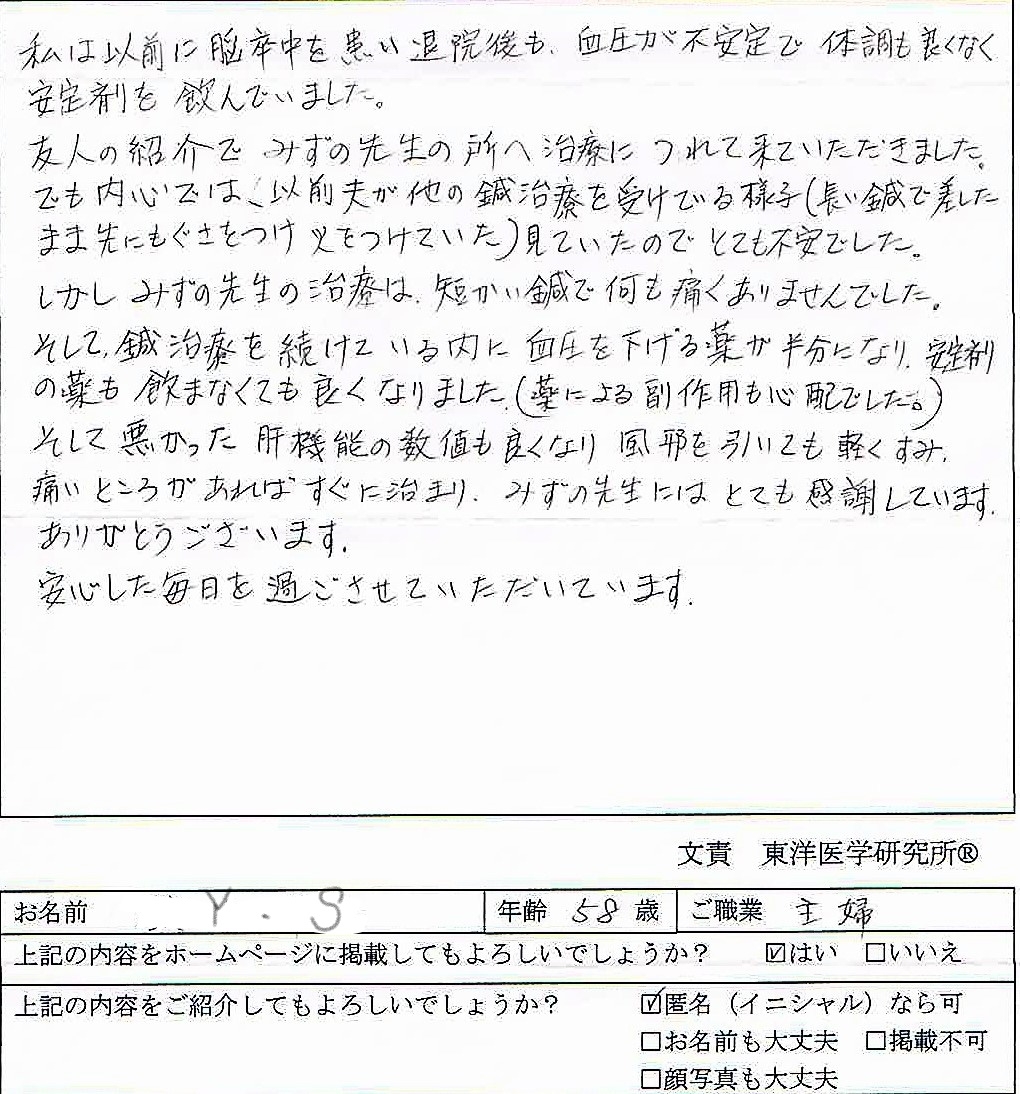 私は以前に脳卒中を患い退院後も、血圧が不安定で体調も良くなく
安定剤を飲んでいました。
友人の紹介でみずの先生の所へ治療につれて来ていただきました。
でも内心では、以前夫が他の鍼治療を受けている様子(長い鍼で差した
まま先にもぐさをつけ火をつけていた)見ていたのでとても不安でした。
しかしみずの先生の治療は、短かい鍼で何も痛くありませんでした。
そして、鍼治療を続けている内に血圧を下げる薬が半分になり、安定剤
の薬も飲まなくても良くなりました。(薬による副作用も心配でした。)
そして悪かった肝機能の数値も良くなり風邪を引いても軽くすみ、
痛いところがあればすぐに治まり、みずの先生にはとても感謝しています。
ありがとうございます。
安心した毎日を過ごさせていただいています。
文責 東洋医学研究所®
お名前 Y.S 年齢 58 歳 ご職業 主婦
上記の内容をホームページに掲載してもよろしいでしょうか? ☑はい □いいえ
上記の内容をご紹介してもよろしいでしょうか? ☑匿名(イニシャル)なら可
□お名前も大丈夫 □掲載不可
□顔写真も大丈夫